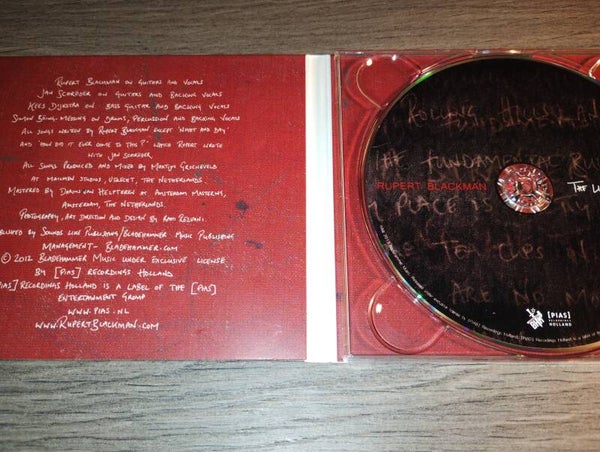 Rupert Blackman on guitars and vocals
Jan Schröder on guitars and backing vocals
Kees Dijkstra on bass guitar and backing vocals
on drums, percussion and backing vocals
All songs written by Rupert Blackman except 'Night and Day'
and 'How did it ever come to this?' which Rupert wrote
with Jan Schröder
All songs produced and mixed by Martijn Groeneveld
at Mailmen Studios, Utrecht, The Netherlands.
Mastered by Darius van Helfteren at Amsterdam Mastering,
Amsterdam, The Netherlands.
Photography, Art Direction and Design by Rami Rezvani.
lished by Sounds Like Publishing/Bladehammer Music Publishing
Management- Bladehammer.com
© 2012 Bladehammer Music under exclusive license
by [PIAS] Recordings Holland
ias] Recordings Holland is a label of the [PIAS]
Entertainment Group
www.pias.nl
www.RupertBlackman.com
Rolling Hills
The Fundamental
RUPERT BLACKMAN
The L
Place is
Are
[PIAS]
RECORDINGS
HOLLAND